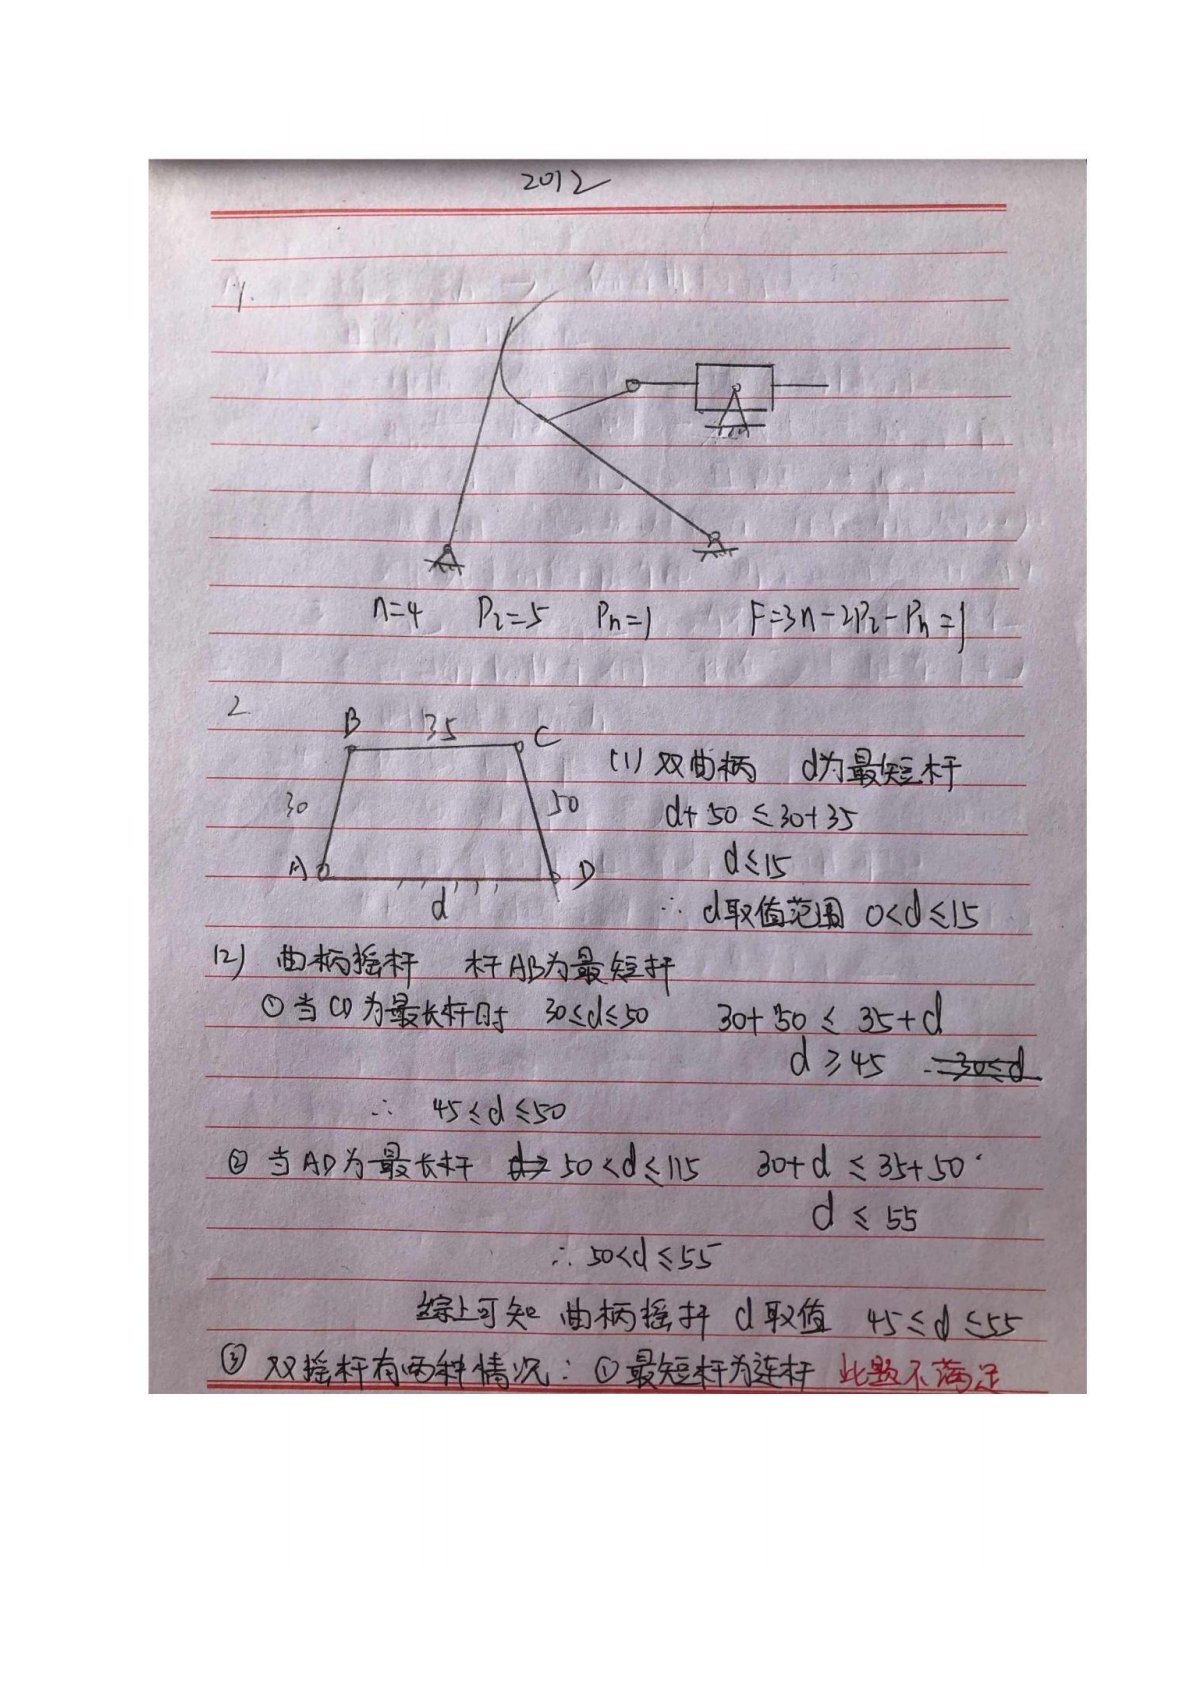 2012
1.
n=4 PL=5 Ph=1 F=3n-2PL-Ph=1
2.
B 35 C
30 50
A D
d
(1) 双曲柄 d为最短杆
d+50≤30+35
d≤15
∴ d取值范围 0<d≤15
(2) 曲柄摇杆 杆AB为最短杆
①当CD为最长杆时 30≤d≤50 30+50≤35+d
d≥45 ∴30≤d
∴ 45≤d≤50
② 当AD为最长杆 50<d≤115 30+d≤35+50
d≤55
∴50<d≤55
综上可知 曲柄摇杆 d取值 45≤d≤55
③ 双摇杆有两种情况：①最短杆为连杆 此题不满足